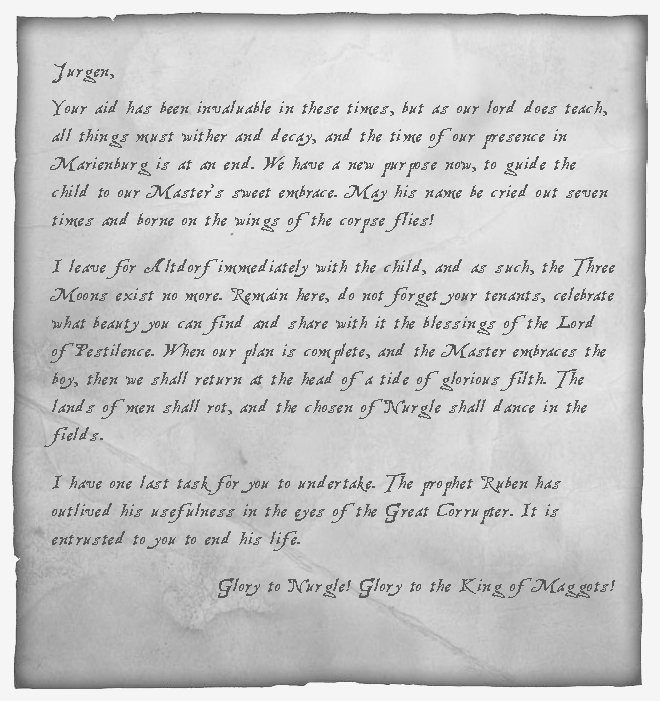 Jurgen,
Your aid has been invaluable in these times, but as our lord does teach,
all things must wither and decay, and the time of our presence in
Marienburg is at an end. We have a new purpose now, to guide the
child to our Master's sweet embrace. May his name be cried out seven
times and borne on the wings of the corpse flies!
I leave for Altdorf immediately with the child, and as such, the Three
Moons exist no more. Remain here, do not forget your tenants, celebrate
what beauty you can find and share with it the blessings of the Lord
of Pestilence. When our plan is complete, and the Master embraces the
boy, then we shall return at the head of a tide of glorious filth. The
lands of men shall rot, and the chosen of Nurgle shall dance in the
fields.
I have one last task for you to undertake. The prophet Ruben has
outlived his usefulness in the eyes of the Great Corrupter. It is
entrusted to you to end his life.
Glory to Nurgle! Glory to the King of Maggots!